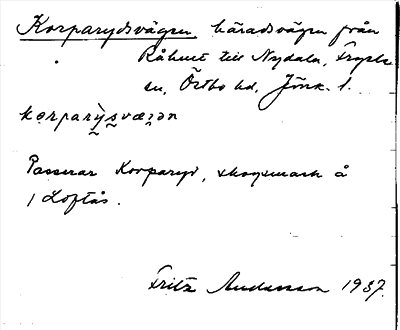 Korparydsvägen häradsvägen från
Råhult till Nydala, Fryele
sn, Östbo hd, Jönk. l.
kɵrparỳs̬væn̬ən
Passerar Korparyd, skogsmark å
1 Loftås.
Fritz Andersson 1937.